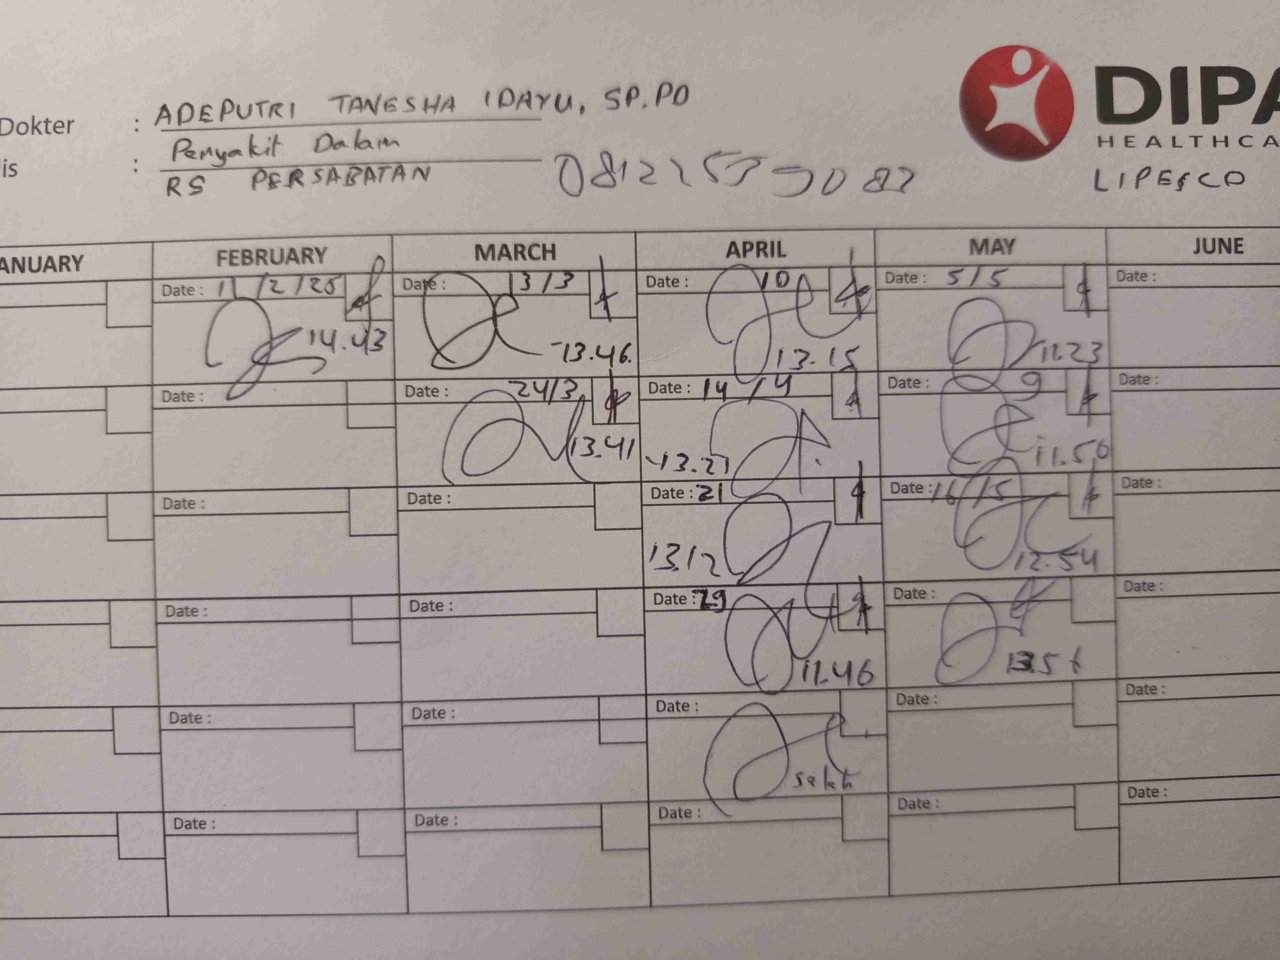 DIPA
HEALTHCA
LIPESCO
Dokter : ADEPUTRI TANESHA IDAYU, SP.PD
is : Penyakit Dalam
RS PERSABATAN
ANUARY FEBRUARY MARCH APRIL MAY JUNE
Date : 11/2/25 Date : 13/3 Date : 10 Date : 5/5 Date :
14.43 13.46 13.15 11.23
Date : Date : 24/3 Date : 14/4 Date : 9 Date :
13.41 13.27 11.50
Date : Date : Date : 21 Date : 16/5 Date :
13.12 12.54
Date : Date : Date : 29 Date : Date :
11.46
Date : Date : Date : Date : Date :
Date : Date : Date : Date : Date :